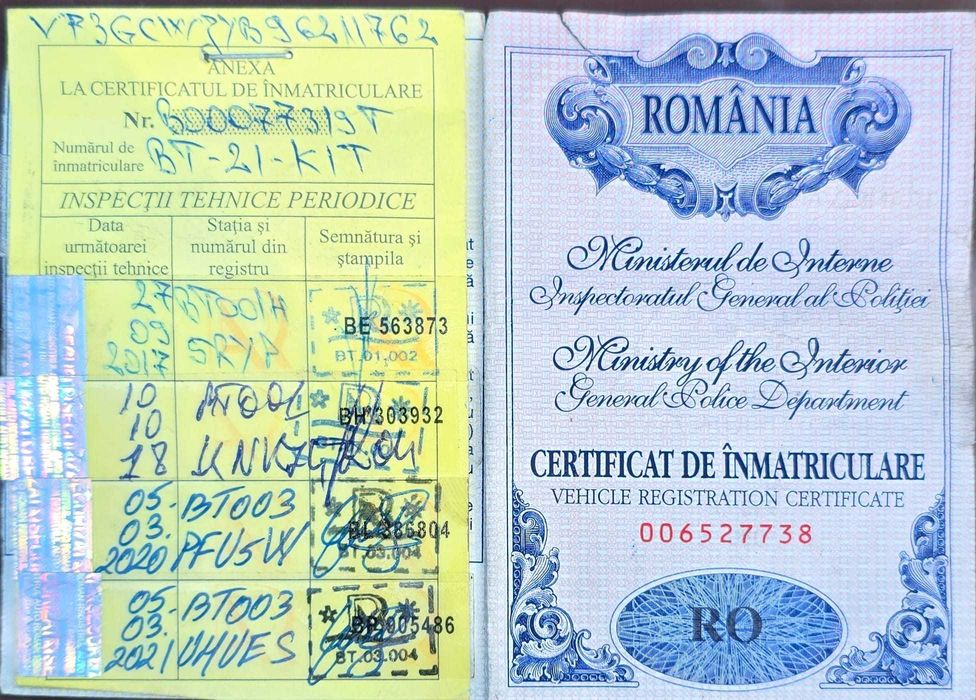 VF3GCWJYB96211762
ANEXA
LA CERTIFICATUL DE ÎNMATRICULARE
Nr. B00077319T
Numărul de înmatriculare BT-21-KIT
INSPECŢII TEHNICE PERIODICE
Data următoarei inspecţii tehnice
Staţia şi numărul din registru
Semnătura şi ştampila
27 09 2017
BT001H
BE 563873
BT.01.002
10 10 18
BH 303932
05. 03. 2020
BT003 PFU5W
BL 386804
BT.03.004
05. 03. 2021
BT003 UHUES
005486
BT.03.004
ROMÂNIA
Ministerul de Interne
Inspectoratul General al Poliţiei
Ministry of the Interior
General Police Department
CERTIFICAT DE ÎNMATRICULARE
VEHICLE REGISTRATION CERTIFICATE
006527738
RO